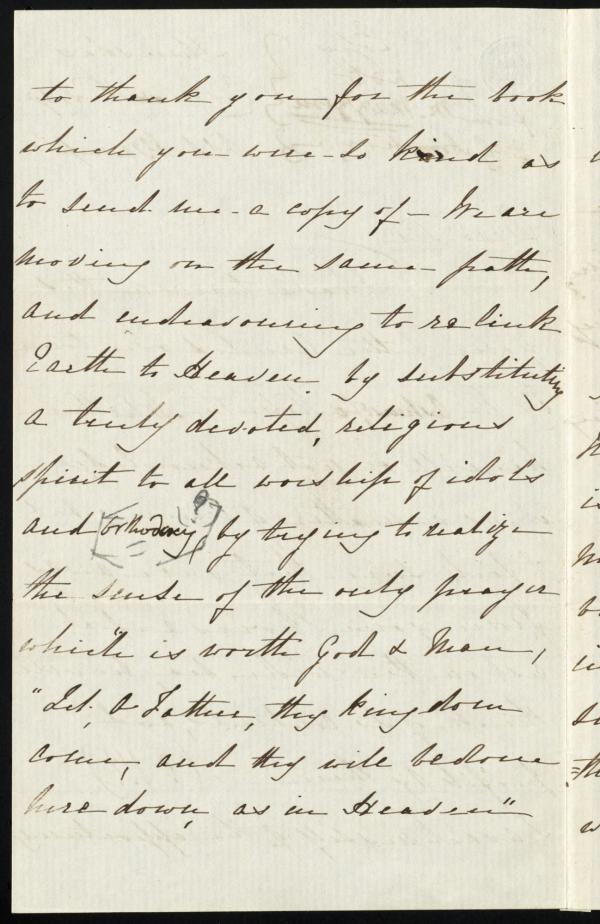 to thank you for the book
which you were so kind as
to send me - a copy of - We are
moving on the same path,
and endeavouring to relink
Earth to Heaven by substituting
a truly devoted, religious
spirit to all worship of idols
(?)
and [orthodoxy], by trying to realize
the sense of the only prayer
which is worth God & Man,
"Let, O Father, thy kingdom
come, and thy will be done
here down, as in Heaven"